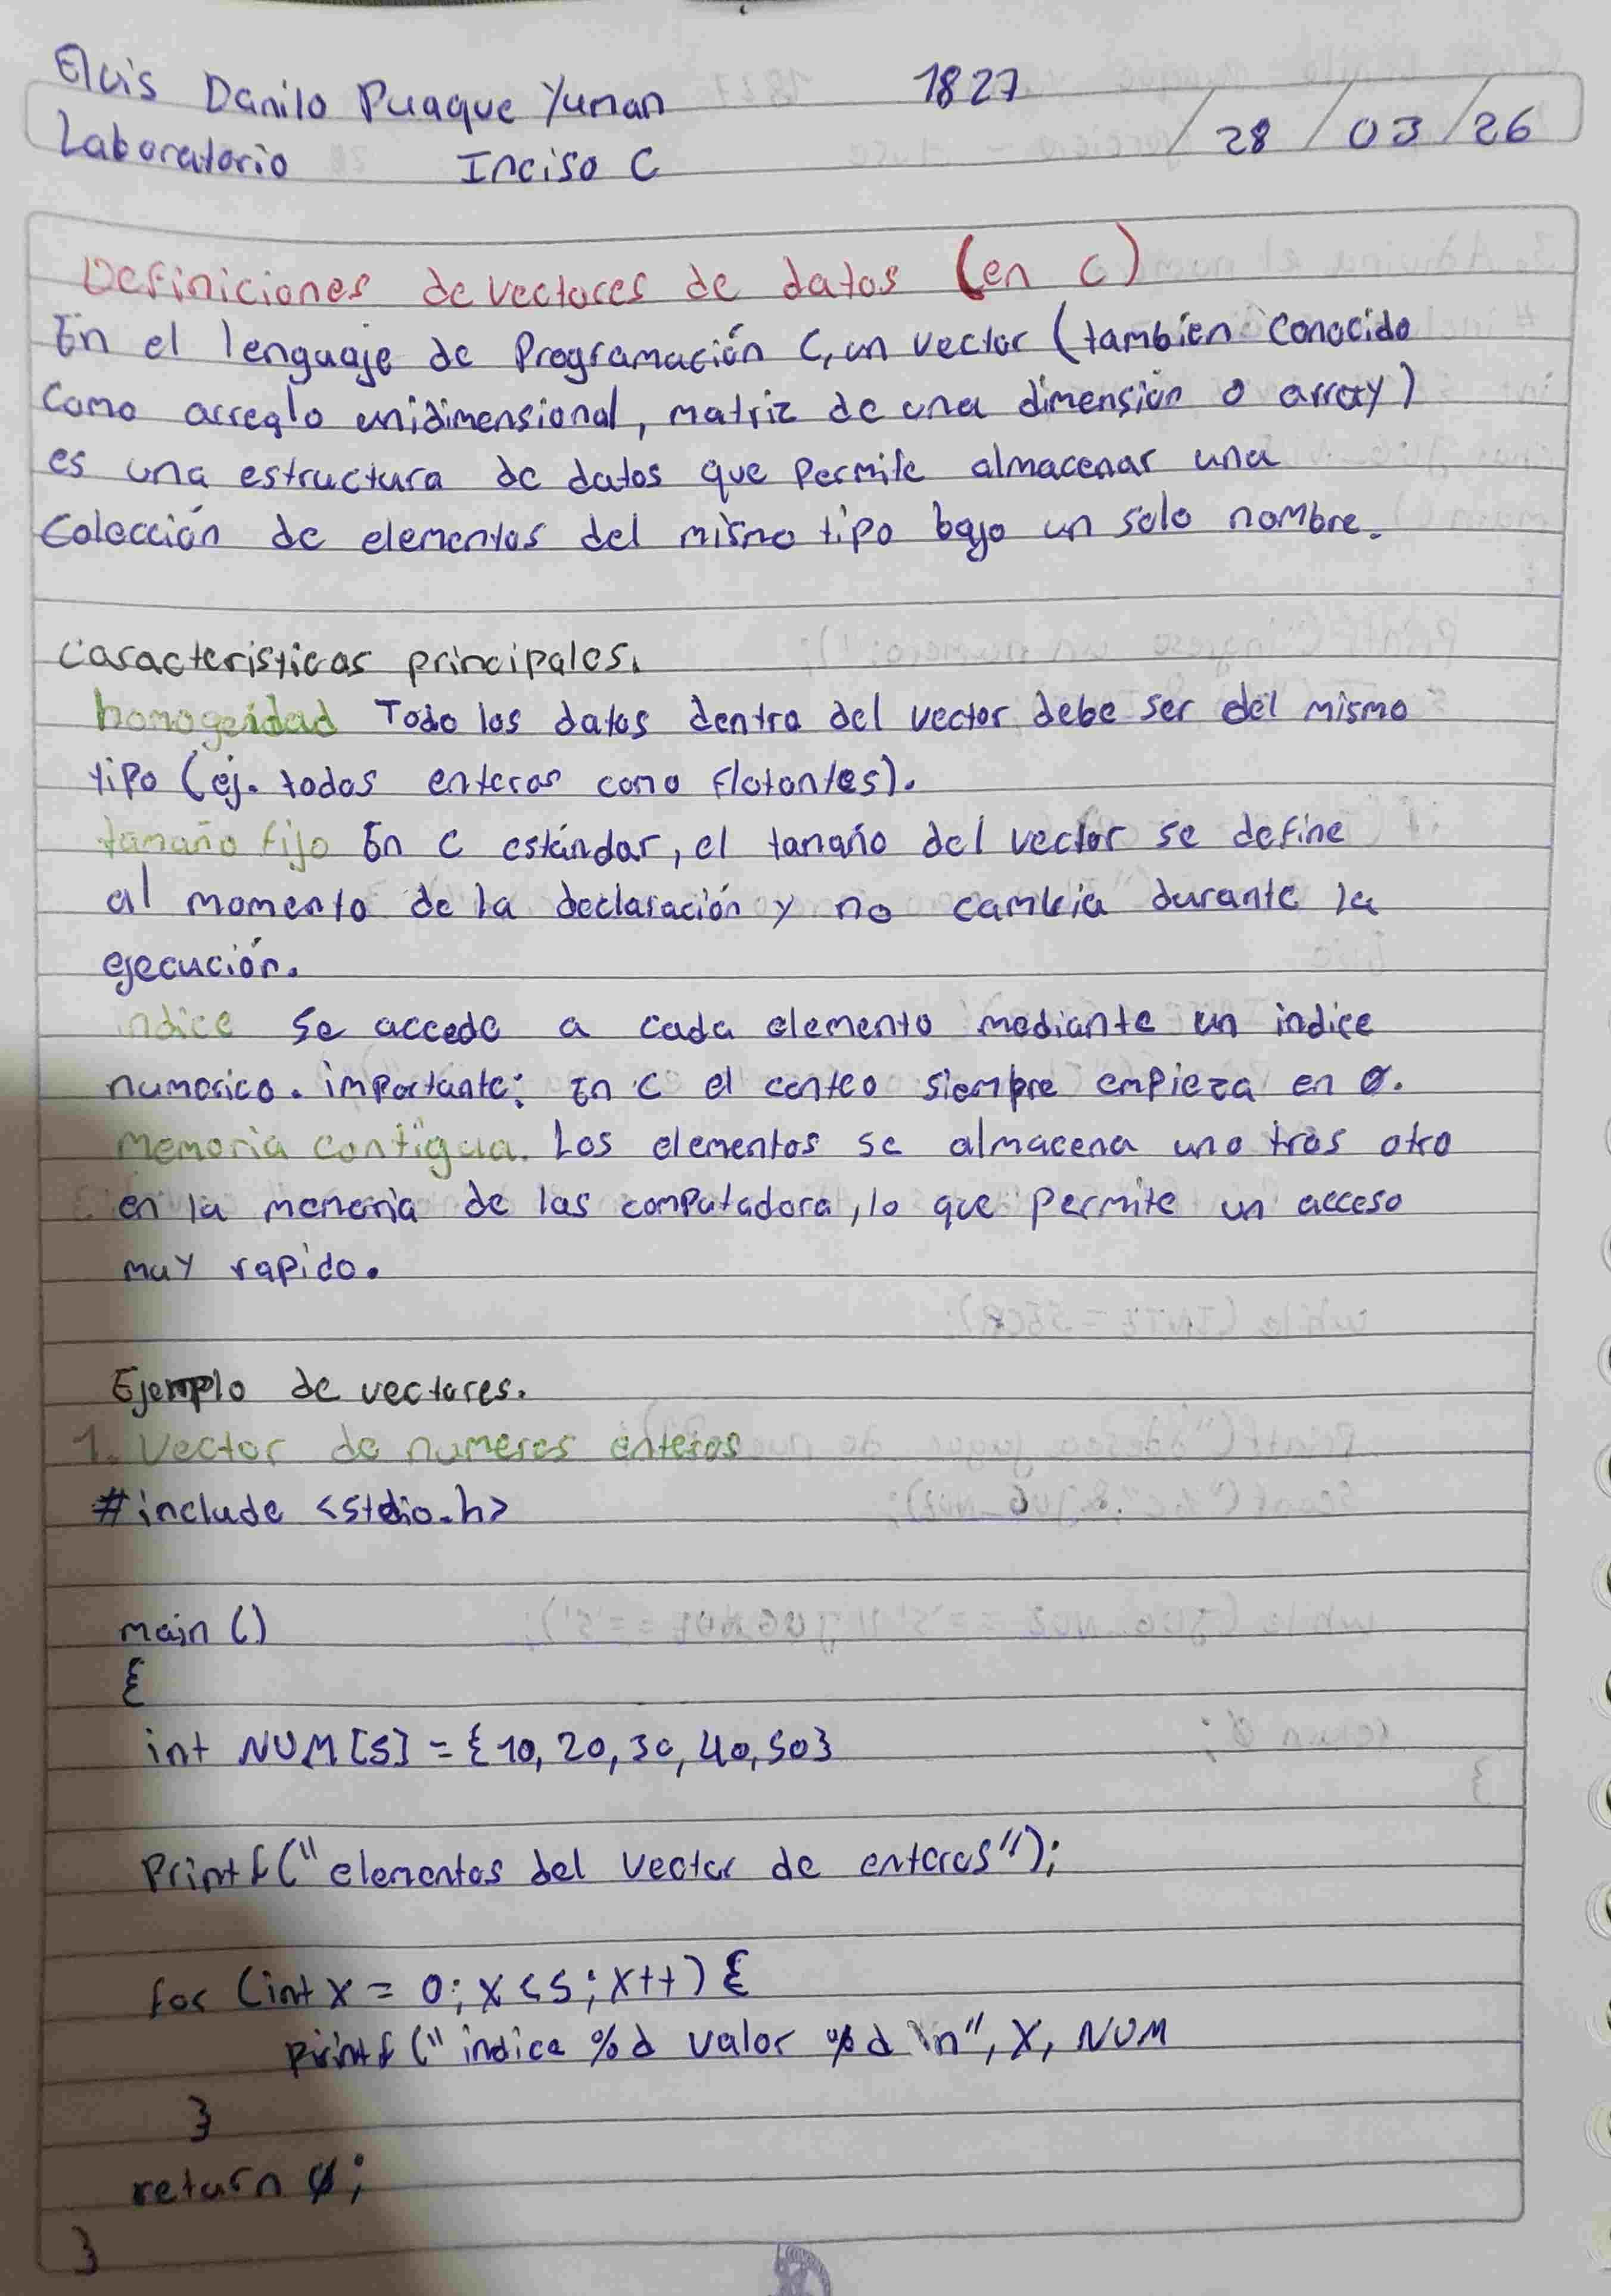 Elvis Danilo Puaque Yuman 1827
Laboratorio Inciso C / 28 / 03 / 26
Definiciones de vectores de datos (en c)
En el lenguaje de Programación C, un vector (tambien conocido
como arreglo unidimensional, matriz de una dimensión o array)
es una estructura de datos que Permite almacenar una
Colección de elementos del mismo tipo bajo un solo nombre.
Caracteristicas principales.
homogeidad Todo los datos dentro del vector debe ser del mismo
tipo (ej. todos enteros como flotantes).
tamaño fijo En C estándar, el tamaño del vector se define
al momento de la declaración y no cambia durante la
ejecución.
indice Se accede a cada elemento mediante un indice
numerico. importante: En C el conteo siempre empieza en 0.
Memoria contigua. Los elementos se almacena uno tras otro
en la memoria de las computadora, lo que permite un acceso
muy rapido.
Ejemplo de vectores.
1. Vector de numeros enteros
#include <stdio.h>
main ()
{
int NUM[5] = {10, 20, 30, 40, 50}
Printf("elementos del vector de enteros");
for (int X = 0; X < 5; X++) {
printf ("indice %d valor %d \n", X, NUM
}
return 0;
}